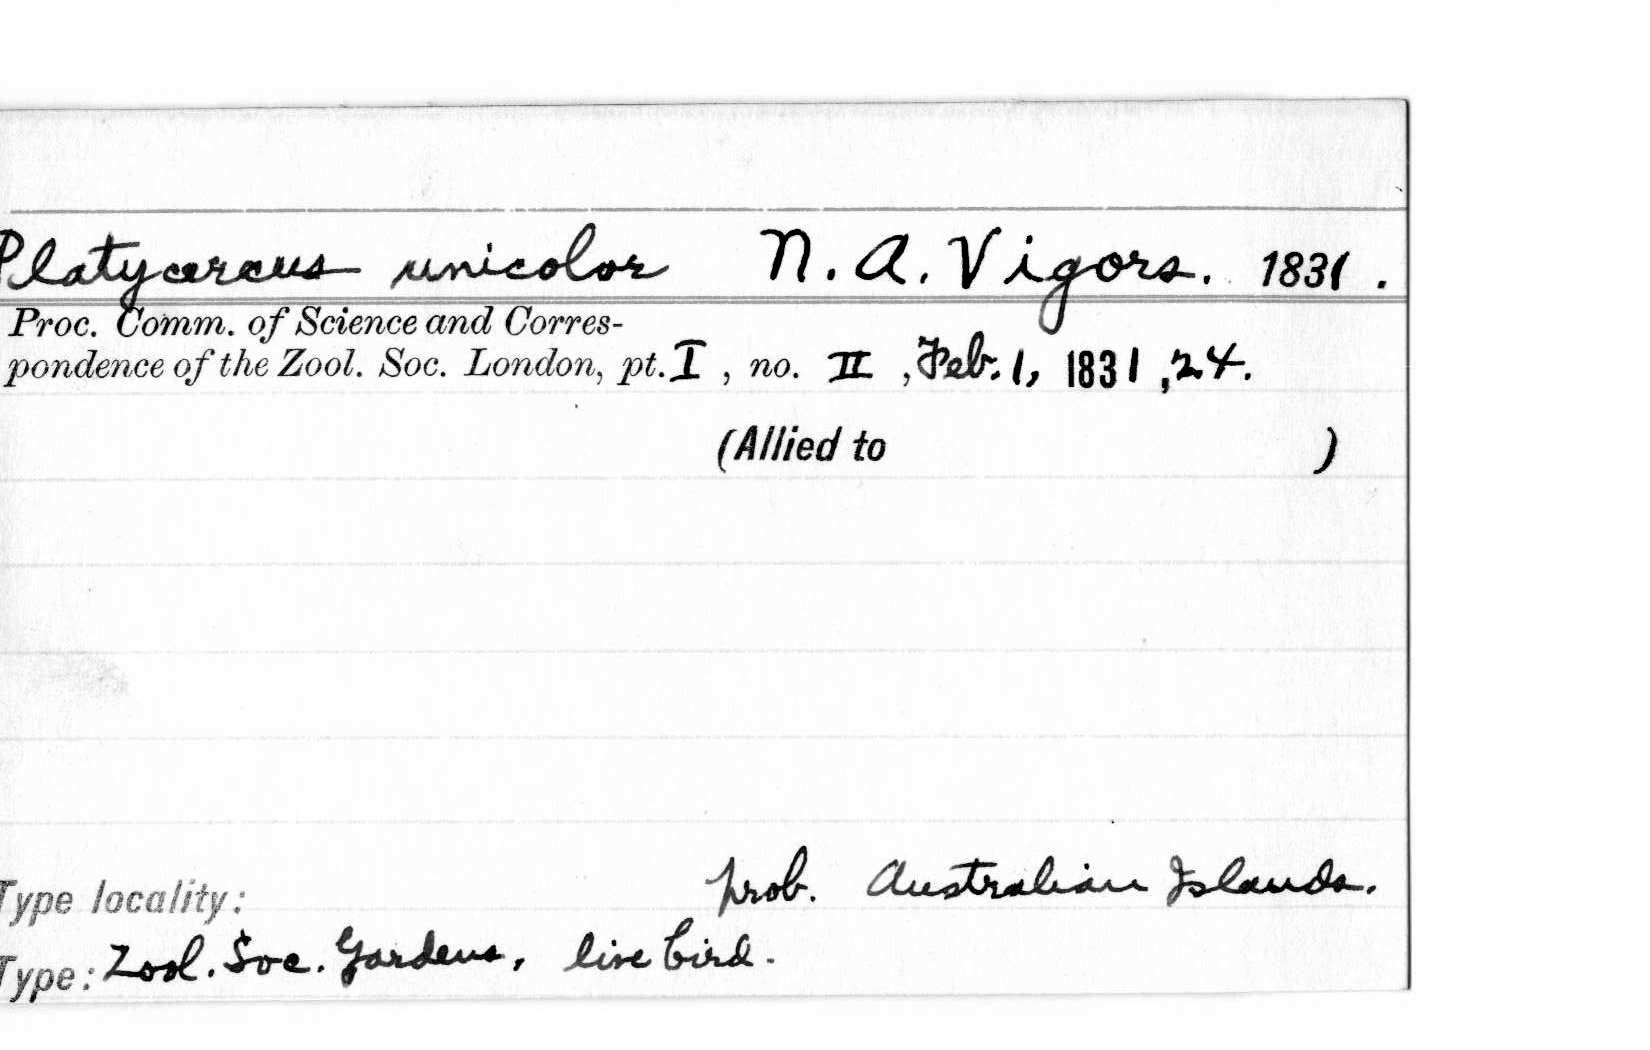 Platycercus unicolor N. A. Vigors. 1831.
Proc. Comm. of Science and Corres-
pondence of the Zool. Soc. London, pt. I, no. II, Feb. 1, 1831, 24.
(Allied to )
Type locality: prob. Australian Islands.
Type: Zool. Soc. Gardens, live bird.